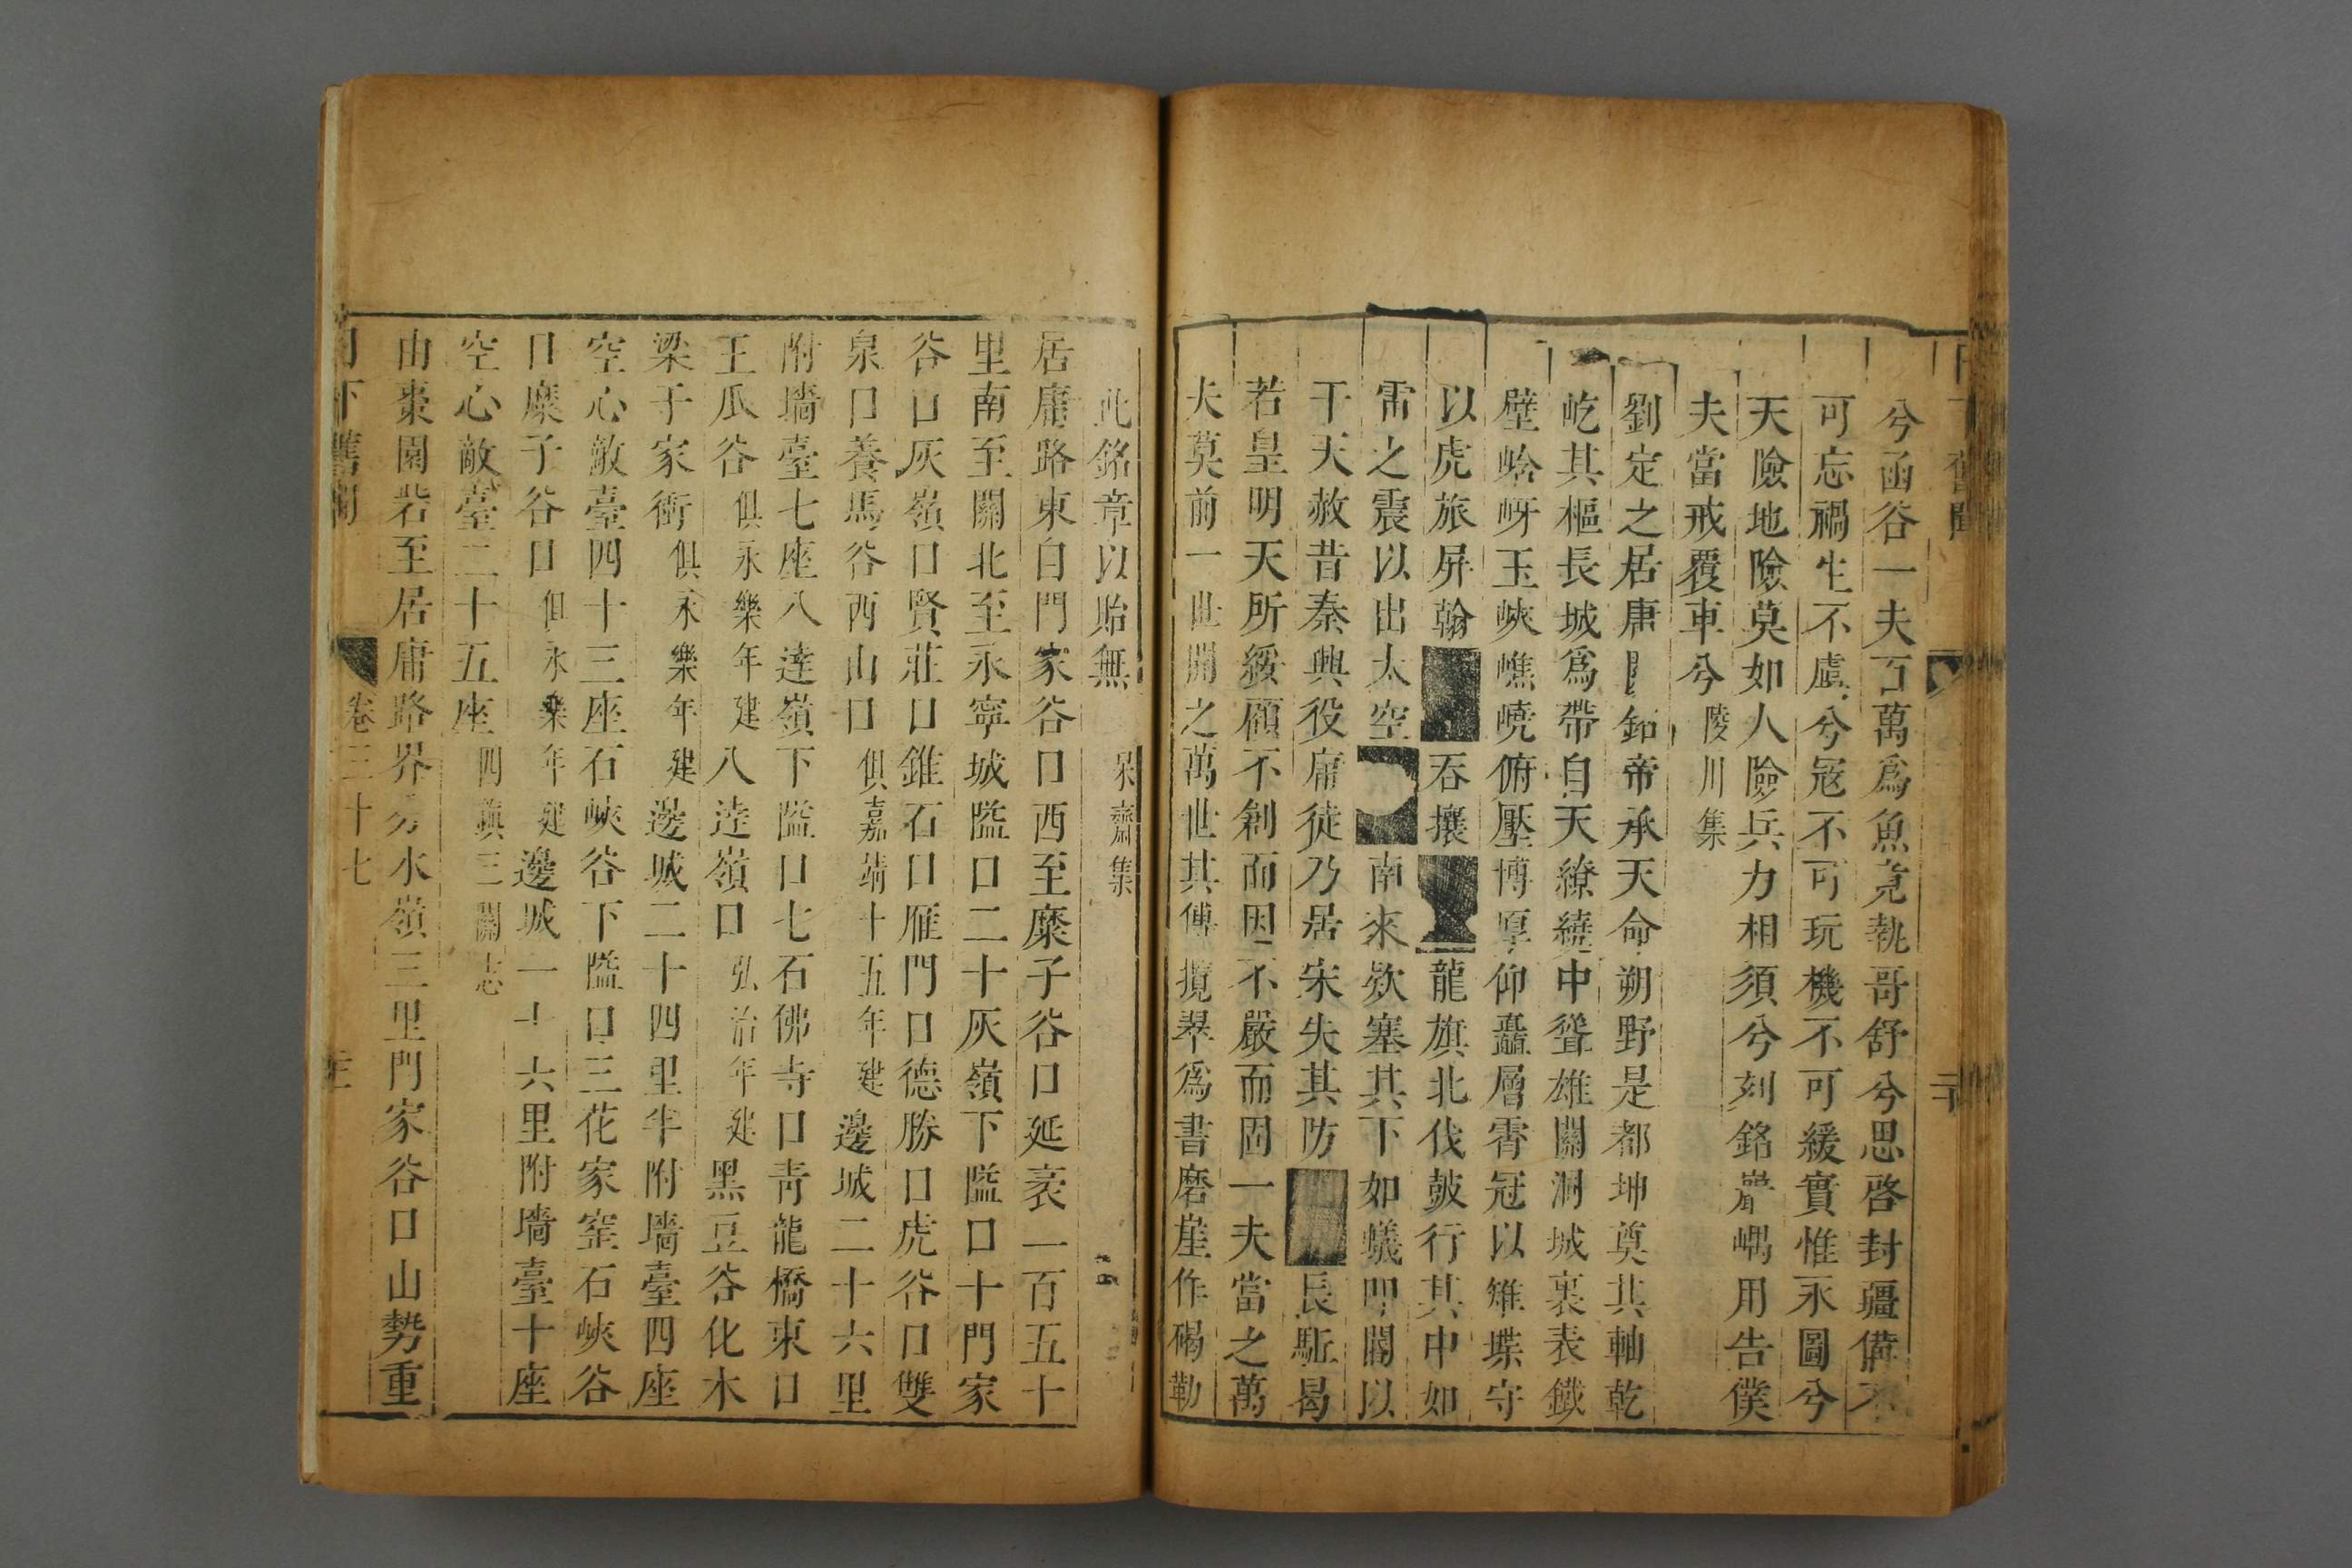 兮函谷一夫百萬爲魚竟執哥舒兮思啓封疆備不
可忘禍生不虞兮寇不可玩機不可緩實惟永圖兮
天險地險莫如人險兵力相須兮刻銘巖嵎用告僕
夫當戒覆車兮陵川集
劉定之居庸銘帝承天命朔野是都坤奠其軸乾
屹其樞長城爲帶自天繚繞中聳雄關洞城裏表鐵
壁峆岈玉峽嶕嶢俯壓博厚仰矗層霄冠以雉堞守
以虎旅屏翰吞攘龍旗北伐鼓行其中如
雷之震以出太空南來欵塞其下如蟻叩關以
干天赦昔秦興役庸徒乃居宋失其防長駈曷
若皇明天所綏顧不創而因不嚴而固一夫當之萬
夫莫前一世開之萬世其傳攬翠爲書磨崖作碣勒
此銘章以貽無 呆齋集
居庸路東自門家谷口西至糜子谷口延袤一百五十
里南至關北至永寧城隘口二十灰嶺下隘口十門家
谷口灰嶺口賢莊口錐石口雁門口德勝口虎谷口雙
泉口養馬谷西山口俱嘉靖十五年建邊城二十六里
附墻臺七座八達嶺下隘口七石佛寺口靑龍橋東口
王瓜谷俱永樂年建八達嶺口弘治年建黑豆谷化木
梁于家衝俱永樂年建邊城二十四里半附墻臺四座
空心敵臺四十三座石峽谷下隘口三花家窰石峽谷
口糜子谷口俱永樂年建邊城一十六里附墻臺十座
空心敵臺二十五座四鎭三關志
由棗園砦至居庸路界分水嶺三里門家谷口山勢重
日下舊聞 卷三十七